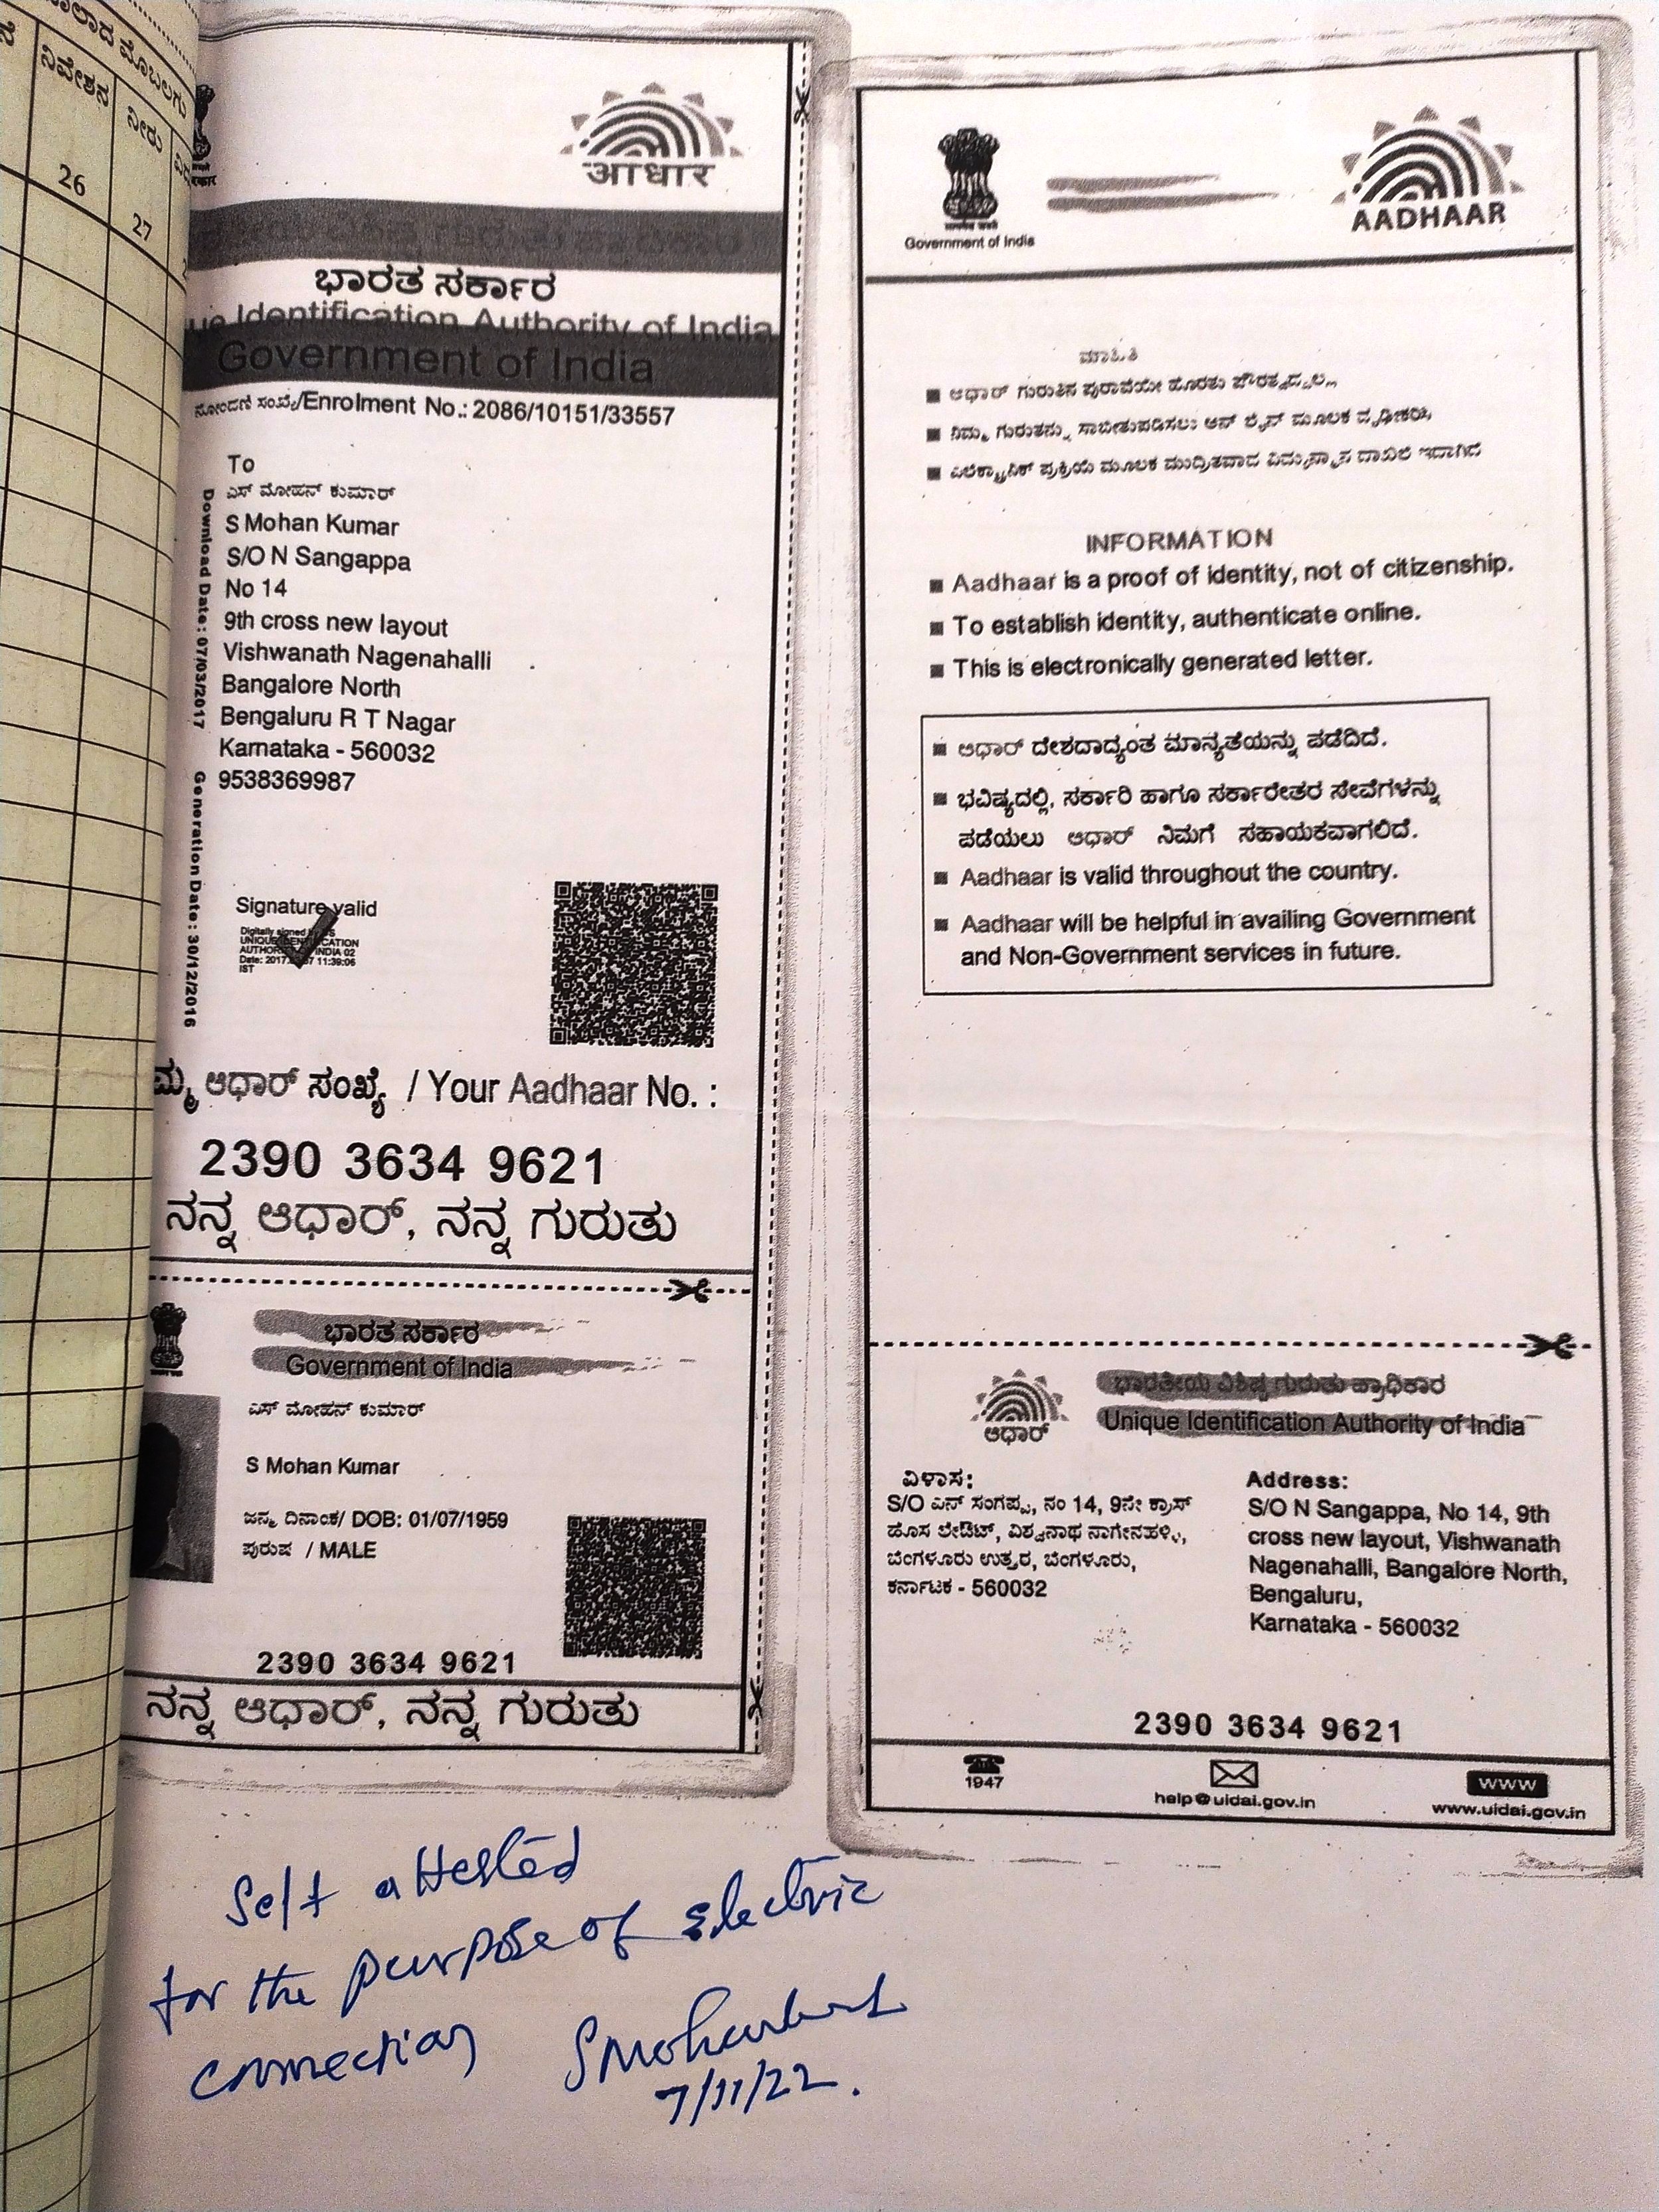 ನಿವೇಶನ
ನೀರು
26
27
आधार
ಭಾರತ ಸರ್ಕಾರ
Identification Authority of India
Government of India
ನೋಂದಣಿ ಸಂಖ್ಯೆ/Enrolment No.: 2086/10151/33557
To
ಎಸ್ ಮೋಹನ್ ಕುಮಾರ್
S Mohan Kumar
S/O N Sangappa
No 14
9th cross new layout
Vishwanath Nagenahalli
Bangalore North
Bengaluru R T Nagar
Karnataka - 560032
9538369987
Download Date: 07/03/2017
Generation Date: 30/12/2016
Signature valid
Digitally signed
UNIQUE IDENTIFICATION
AUTHORITY INDIA 02
Date: 2017. 11:39:06
IST
ಆಧಾರ್ ಸಂಖ್ಯೆ / Your Aadhaar No. :
2390 3634 9621
ನನ್ನ ಆಧಾರ್, ನನ್ನ ಗುರುತು
ಭಾರತ ಸರ್ಕಾರ
Government of India
ಎಸ್ ಮೋಹನ್ ಕುಮಾರ್
S Mohan Kumar
ಜನ್ಮ ದಿನಾಂಕ/ DOB: 01/07/1959
ಪುರುಷ / MALE
2390 3634 9621
ನನ್ನ ಆಧಾರ್, ನನ್ನ ಗುರುತು
Government of India
AADHAAR
ಮಾಹಿತಿ
■ ಆಧಾರ್ ಗುರುತಿನ ಪುರಾವೆಯೇ ಹೊರತು ಪೌರತ್ವದ್ದಲ್ಲ
■ ನಿಮ್ಮ ಗುರುತನ್ನು ಸಾಬೀತುಪಡಿಸಲು ಆನ್ ಲೈನ್ ಮೂಲಕ ದೃಢೀಕರಿಸಿ
■ ಎಲೆಕ್ಟ್ರಾನಿಕ್ ಪ್ರಕ್ರಿಯೆ ಮೂಲಕ ಮುದ್ರಿತವಾದ ದಾಖಲೆ ಇದಾಗಿದೆ
INFORMATION
■ Aadhaar is a proof of identity, not of citizenship.
■ To establish identity, authenticate online.
■ This is electronically generated letter.
■ ಆಧಾರ್ ದೇಶದಾದ್ಯಂತ ಮಾನ್ಯತೆಯನ್ನು ಪಡೆದಿದೆ.
■ ಭವಿಷ್ಯದಲ್ಲಿ, ಸರ್ಕಾರಿ ಹಾಗೂ ಸರ್ಕಾರೇತರ ಸೇವೆಗಳನ್ನು
ಪಡೆಯಲು ಆಧಾರ್ ನಿಮಗೆ ಸಹಾಯಕವಾಗಲಿದೆ.
■ Aadhaar is valid throughout the country.
■ Aadhaar will be helpful in availing Government
and Non-Government services in future.
ಆಧಾರ್
ಭಾರತೀಯ ವಿಶಿಷ್ಟ ಗುರುತು ಪ್ರಾಧಿಕಾರ
Unique Identification Authority of India
ವಿಳಾಸ:
S/O ಎನ್ ಸಂಗಪ್ಪ, ನಂ 14, 9ನೇ ಕ್ರಾಸ್
ಹೊಸ ಲೇಔಟ್, ವಿಶ್ವನಾಥ ನಾಗೇನಹಳ್ಳಿ,
ಬೆಂಗಳೂರು ಉತ್ತರ, ಬೆಂಗಳೂರು,
ಕರ್ನಾಟಕ - 560032
Address:
S/O N Sangappa, No 14, 9th
cross new layout, Vishwanath
Nagenahalli, Bangalore North,
Bengaluru,
Karnataka - 560032
2390 3634 9621
1947
help@uidai.gov.in
www
www.uidai.gov.in
Self attested
for the purpose of electric
connection
7/11/22.